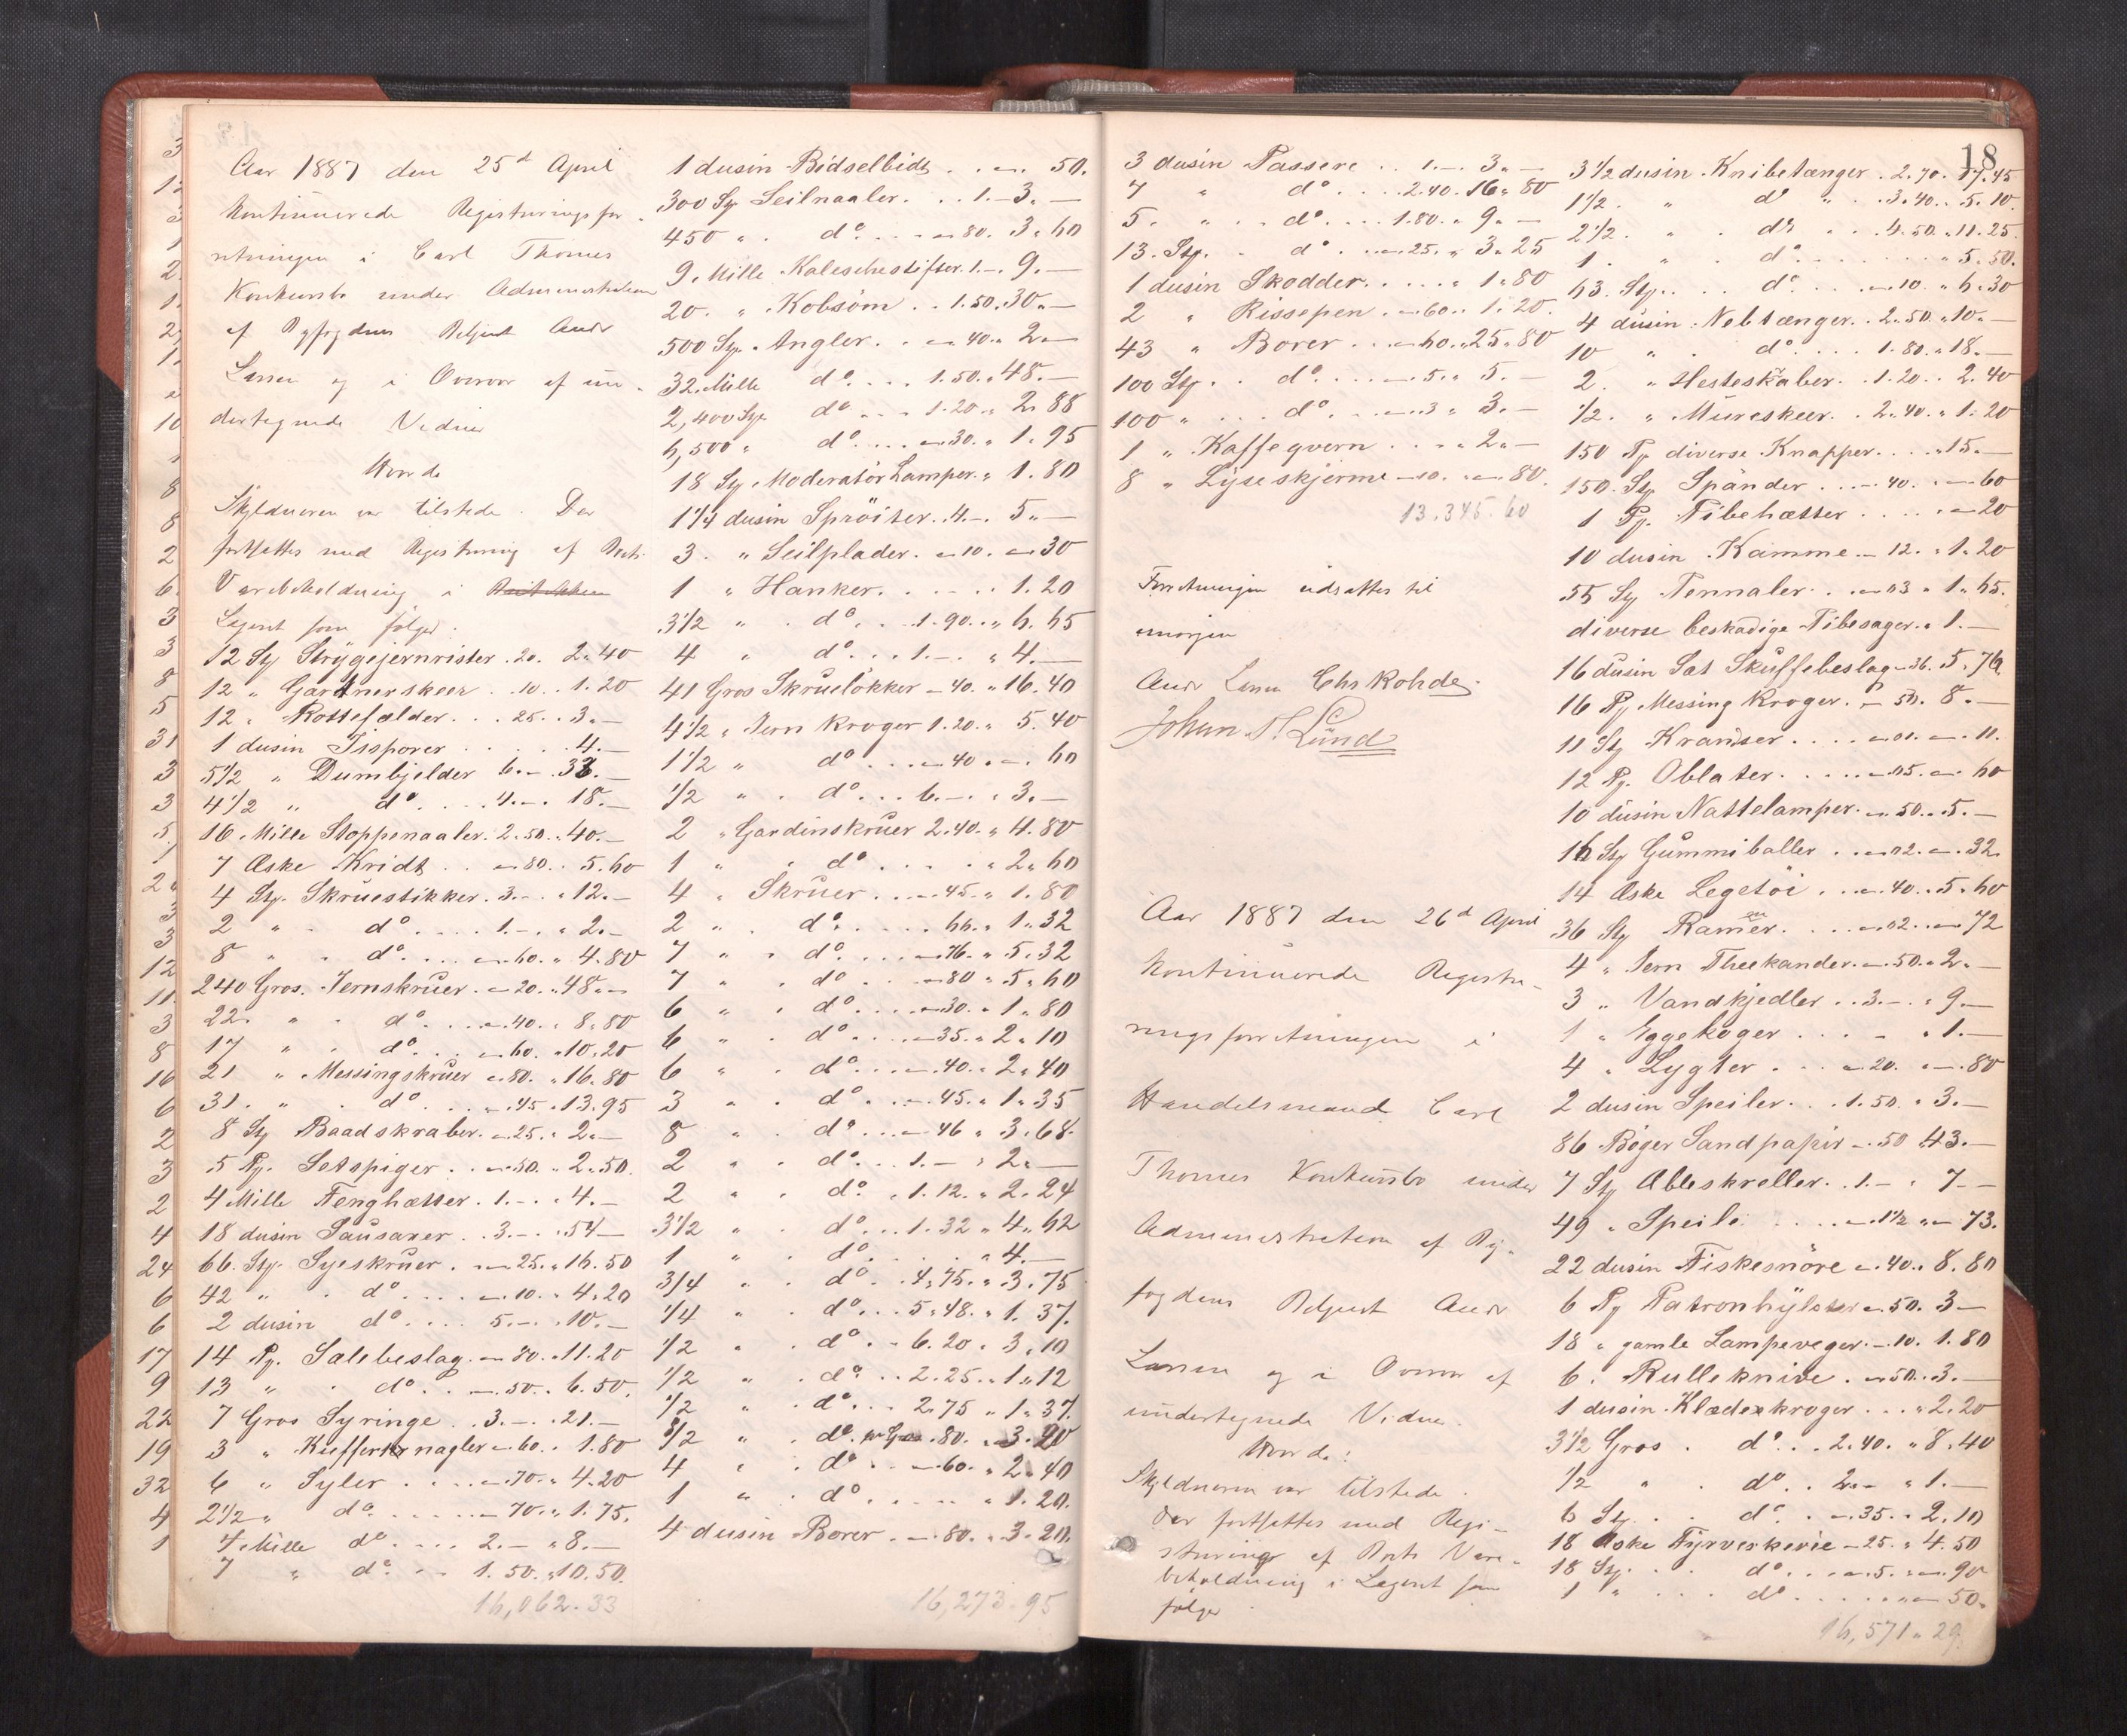 Aar 1887 den 25d April
kontinuerede Registuringsfor-
retningen i Carl Thomes
Konkursbo under Administration
af Byfogdens Betjent Andr
Larsen og i Overvær af un-
dertegnede Vidner
Hvorda
Skyldneren var tilstede. Der
fortsattes med Registrering af Boets
Varebeholdning i
Lageret som følger:
12 Sty Strygejernrister . 20. 2.40
12 " Gartnerskeer . 10. 1.20
12 " Rottefælder . . . 25. . 3.—
1 dusin Issporer . . . . . 4.—
5 1/2 " Dumbjelder 6.— 33.—
4 1/2 " do . . . . 4.— . 18.—
16 Mille Stoppenaaler. 2.50. . 40.—
7 Æske Kridt . . — 80. . 5.60
4 Sty. Skruestikker. 3.— . " 12.—
2 " do . . . . 1.— . " 2.—
8 " do . . . — 60. " 4.80
240 Gros. Jernskruer. — 20. " 48.—
22 " do . . . — 40. " 8.80
17 " do . . . — 60. " 10.20
21 " Messingskruer — 80. " 16.80
31 " do . . . — 45 " 13.95
8 Sty Baadskraber. — 25. " 2.—
5 Pg. Setspiger . . — 50. " 2.50
4 Mille Fenghætter . 1.— . " 4.—
18 dusin Sausaxer . . 3.— . " 54—
66. Sty. Syeskruer . — 25. " 16.50
42 " do . . . . — 10. " 4.20
2 dusin do . . . . 5.— . " 10.—
14 Pg. Salebeslag. — 80. " 11.20
13 " do . . . — 50. " 6.50.
7 Gros Syringe . . 3.— . " 21.—
3 " Kuffertnagler — 60. . 1.80
6 " Syler . . . . — 70. " 4.20
2 1/2 " do . . . . — 70. " 1.75.
4 Mille do . . . . 2.— " 8.—
7 " do . . 1.50. " 10.50.
16,062.33
1 dusin Bidselbidt . . — . 50.
300 Sty Seilnaaler . . . 1.— 3.—
450 " do . . . — 80. . 3.60
9. Mille Kaleschestifter. 1.— . 9.—
20. " Kobsøm . . 1.50. 30.—
500 Sty. Angler. . — 40. " 2.—
32. Mille do . . . . 1.50. " 48.—
2,400 Sty. do . . . 1.20 " 2.88
6,500 " do . . . — 30. " 1.95
18 Sty Moderatør Lamper. " 1.80
1 1/4 dusin Sprøiter. . 4.— . 5.—
3. " Seilplader. — 10. — 30
1 " Hanker. . . . . . 1.20
3 1/2 " do . . . 1.90. . " 6.65
4 " do . . . 1.— . " 4.—
41 Gros Skrueløkker — 40. " 16.40
4 1/2 " Jern Kroger 1.20. " 5.40
1 1/2 " do . . . — 40 . — . 60
1/2 " do . . . 6.— . " 3.—
2 " Gardinskruer 2.40. " 4.80
1 " do . . . . . " 2.60
4 " Skruer . . . — 45. " 1.80
2 " do . . . . . 66. " 1.32
7 " do . . . — 76. " 5.32
7 " do . . . — 80 " 5.60
6 " do . . . — 30. " 1.80
6 " do . . . — 35. " 2.10
6 " do . . . — 40. " 2.40
3 " do . . . — 45. " 1.35
8 " do . . . — 46 " 3.68.
2 " do . . . 1.— " 2.—
2 " do . 1.12. " 2.24
3 1/2 " do . . . 1.32 " 4.62
1 " do . . . . . " 4.—
3/4 " do . . 4.75. " 3.75
1/4 " do . . . 5.48. " 1.37.
1/2 " do . . . 6.20 . 3.10
1/2 " do . . 2.25. . 1.12
1/2 " do . . . 2.75 " 1.37.
do . 80. . 3.20
4 " do . . — 60. " 2.40
1 " do . . . . . " 1.20.
4 dusin Borer . — 80. " 3.20.
16,273.95
3 dusin Passere . . 1.— . 3.—
7 " do . . . . 2.40. 16.80
5. " do . . . . 1.80. " 9.—
13. Sty. do . . — 25. " 3.25
1 dusin Skodder. . . . . " 1.80
2 " Rissepen . — 60. . 1.20.
43 " Borer . . . — 60. " 25.80
100 Sty. . do . . . — 5. " 5.—
100 " . . . do . . . — 3 " 3.—
1 " Kaffeqvern . . . . " 2.—
8 " Lyseskjerme — 10. — 80.
13.345.60
Forretningen udsattes til
imorgen
Andr Larsen Chs Rohde
Johan H. Lund
Aar 1887 den 26d April
kontinuerede Registre-
ringsforretningen i
Handelsmand Carl
Thomes Konkursbo under
Administration af By-
fogdens Betjent Andr
Larsen og i Overvær af
undertegnede Vidner.
Hvorda:
Skyldneren var tilstede.
Der fortsattes med Regi-
streringe af Boets Vare-
beholdning i Lageret som
følger
18
3 1/2 dusin Knibetænger . 2.70. 17.45
1 1/2. " do " . . 3.40. . 5.10.
2 1/2. " do . . . 4.50. " 11.25.
1. " do . . . . . . . " 5.50.
63. Sty. . . do . . . — 10. " 6.30
4 dusin Nebtænger. . 2.50. " 10.—
10 " do . . . . 1.80. " 18.—
2. " Hesteskaber. . 1.20. . 2.40
1/2. " Mureskeer. . 2.40. " 1.20
150 Pg diverse Knapper. . . . " 15.—
150. Sty Spänder . . . — 40. . — 60
1 Pg. Pibehætter . . . . . — 20
10 dusin Kamme — 12. " 1.20
55 Sty Pennaler . . — 03 " 1.65.
diverse beskadige Pibesager. " 1.—
16 dusin Sæt Skuffebeslag — 36. . 5.76
16 Pg Messing Kroger. — 50. 8.—
11 Sty Krandser . . . . — 01. — . 11.
12 Pg. Oblater. . . . . — 05. — . 60
10 dusin Nattelamper. — 50. " 5.—
16 Sty Gummiballer . . — 02. — . 32.
14 Æske Legetøi . . — 40. . 5.60
36 Sty Rammer. . . . — 02. . — 72
4 " Jern Theekander. — 50. " 2.—
3 " Vandkjedler . . 3.— . " 9.—
1 " Eggekoger . . . — " 1.—
4 " Lygter . . . — 20. . — . 80
2 dusin Speiler . . . 1.50. " 3.—
86 Bøger Sandpapir — 50 43.—
7 Sty Ableskreller. . 1.— " 7.—
49 " Speile . . . . — 1 1/2 " — 73.
22 dusin Fiskesnøre — . 40. " 8.80
6 Pg Patronhylster — . 50. 3—
18 " gamle Lampeveger. — 10. 1.80
6. " Rulleknive . — 50. . 3.—
1 dusin Klædeskroger . . . " 2.20
3 1/2 Gros . do . . . 2.40. " 8.40
1/2 " do . . 2.— " 1.—
6 Sty . . do . . — . 35. " 2.10
18 Æske Fyrveskerie — 25. " 4.50
18 Sty. . . do . . . — 5. " — . 90
1 " do . . . . . — 50.
16,571.29